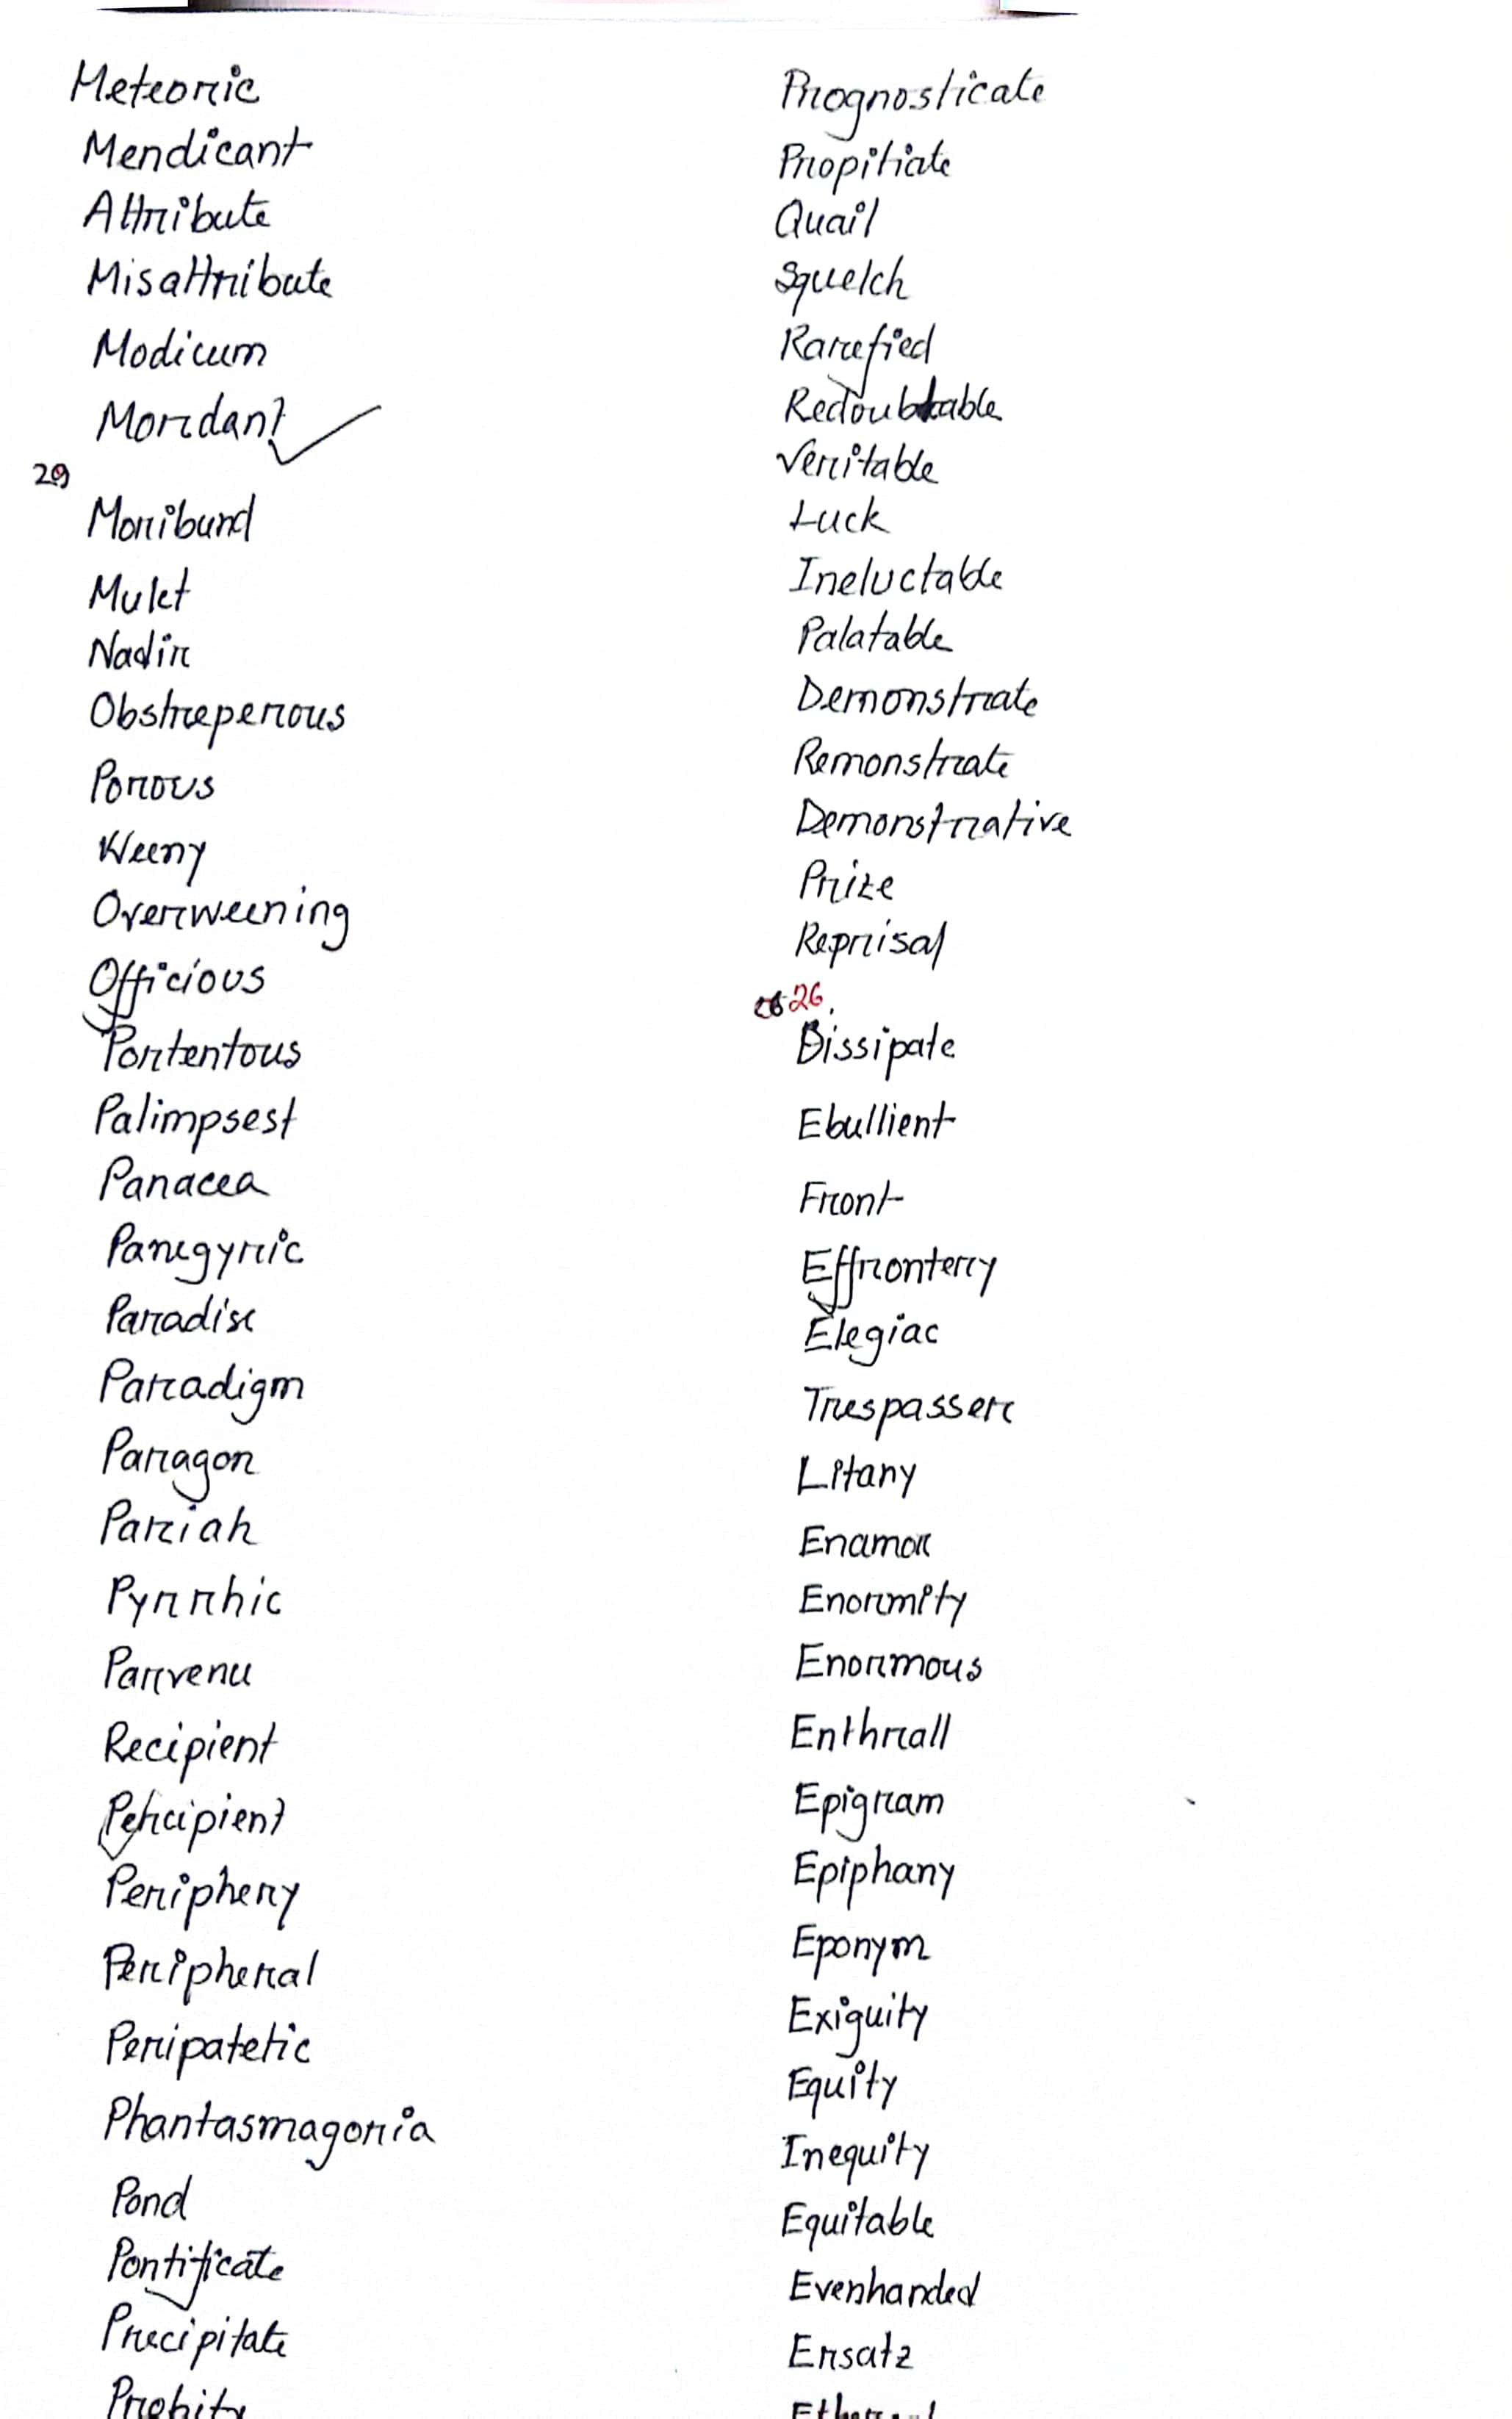 Meteoric
Mendicant
Attribute
Misattribute
Modicum
Mordant
29
Moribund
Mulct
Nadir
Obstreperous
Porous
Weeny
Overweening
Officious
Portentous
Palimpsest
Panacea
Panegyric
Paradise
Paradigm
Paragon
Pariah
Pyrrhic
Parvenu
Recipient
Percipient
Periphery
Peripheral
Peripatetic
Phantasmagoria
Pond
Pontificate
Precipitate
Probity
Prognosticate
Propitiate
Quail
Squelch
Rarefied
Redoubtable
Veritable
Luck
Ineluctable
Palatable
Demonstrate
Remonstrate
Demonstrative
Prize
Reprisal
26.
Dissipate
Ebullient
Front
Effrontery
Elegiac
Trespasser
Litany
Enamor
Enormity
Enormous
Enthrall
Epigram
Epiphany
Eponym
Exiguity
Equity
Inequity
Equitable
Evenhanded
Ersatz
Ethereal